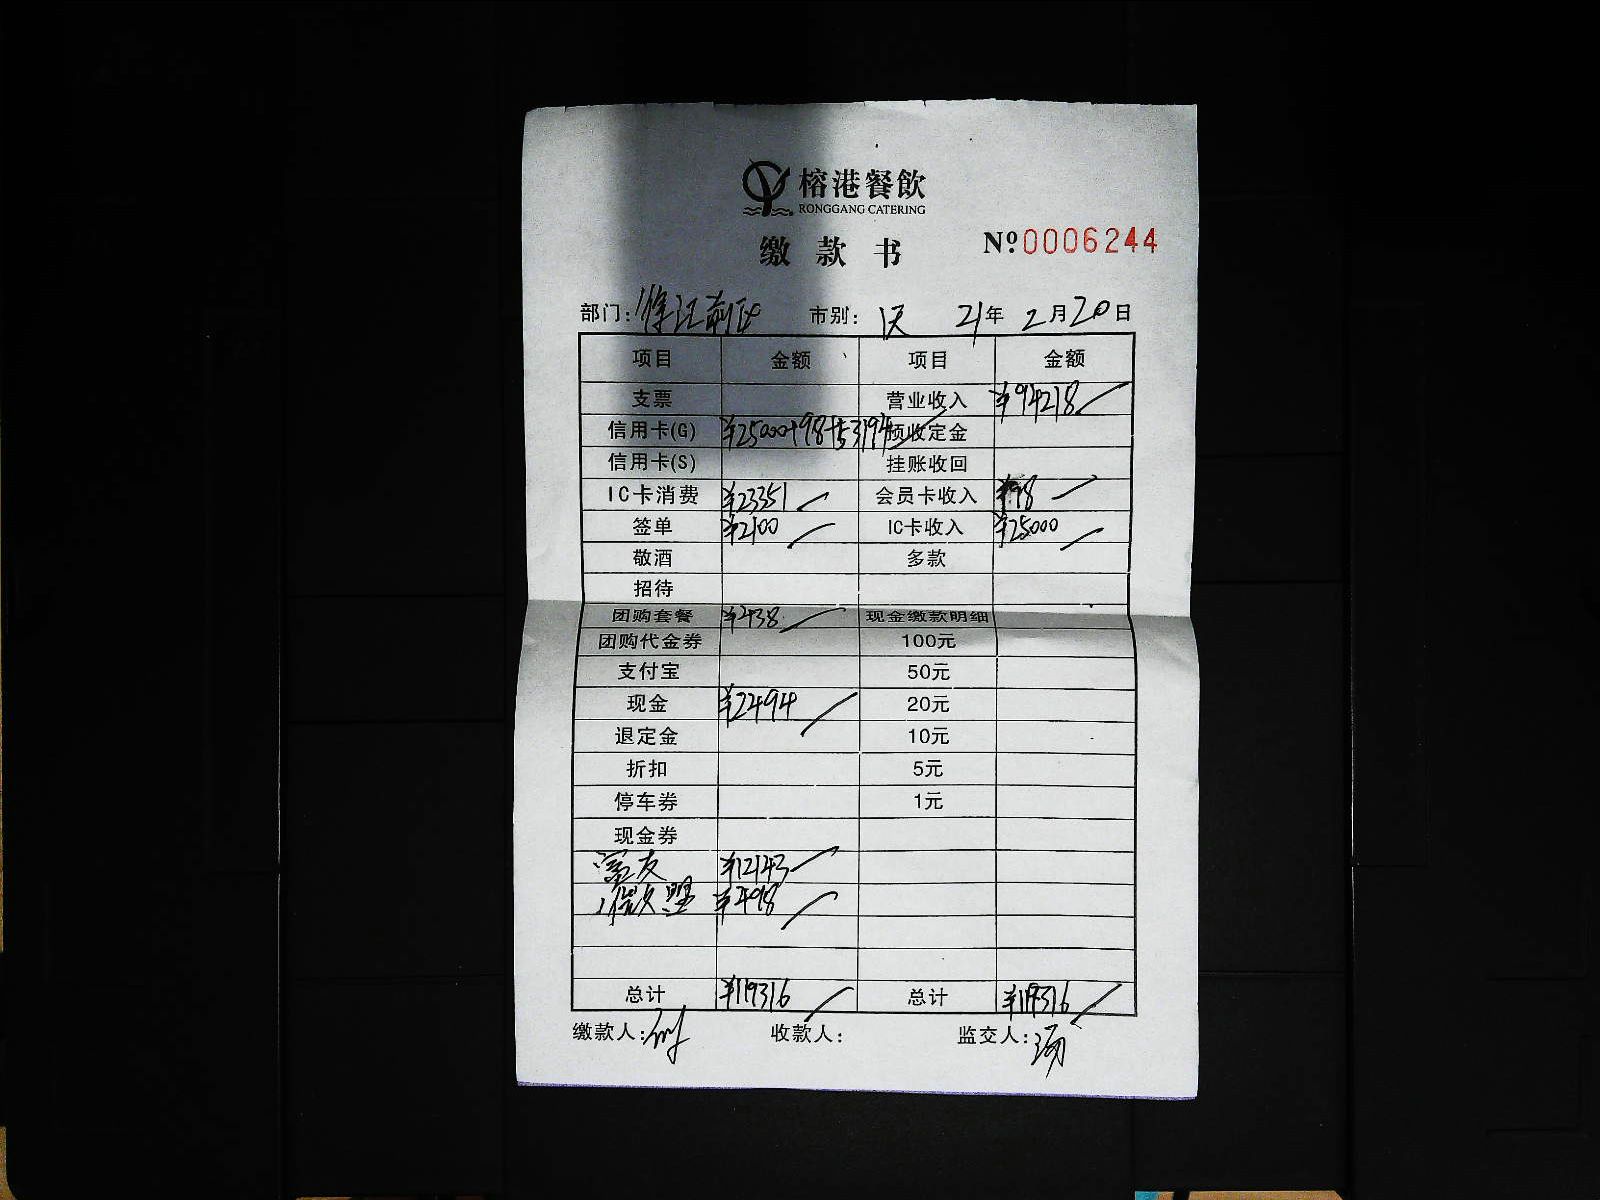 榕港餐飲
RONGGANG CATERING
缴款书 Nº 0006244
部门: 市别: 21年2月20日
项目 金额 项目 金额
支票 营业收入 ¥94218
信用卡(G) ¥25000+98+53194 预收定金
信用卡(S) 挂账收回
IC卡消费 ¥23351 会员卡收入 ¥98
签单 ¥2100 IC卡收入 ¥25000
敬酒 多款
招待
团购套餐 ¥438 现金缴款明细
团购代金券 100元
支付宝 50元
现金 ¥2494 20元
退定金 10元
折扣 5元
停车券 1元
现金券
富友 ¥12143
微盟 ¥498
总计 ¥119316 总计 ¥119316
缴款人: 收款人: 监交人: